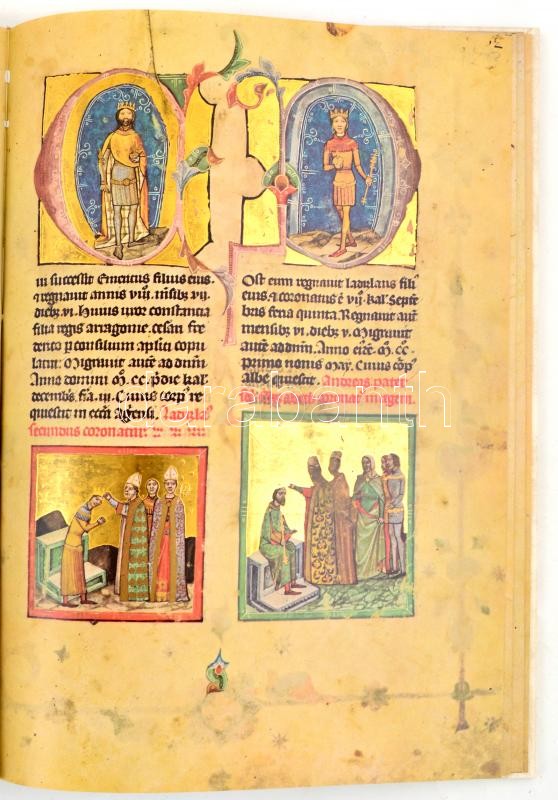 iii successit Emericus filius eius.
⁊ regnavit annis viij. mensibus vij
diebus vi. Huius uxor constancia
filia regis arragonie. cesari fre
derico per consilium aplici copu
latur. Migravit autem ad dnm
Anno domini M. CC. pridie kal.
decembris. fia. iij. Cuius corpus re
quiescit in eccia Agriensi. Ladizlaus
secundus coronatur.
Ost eum regnavit Ladizlaus fili
eius. ⁊ coronatus est vij. kal. septe
bris feria quinta. Regnavit aut
mensibus vi. diebus v. Migravit
autem ad dnm. Anno eiusdem. M. CC.
Primo nonis may. Cuius corpus
albe quiescit. Andreas pater
darabanth